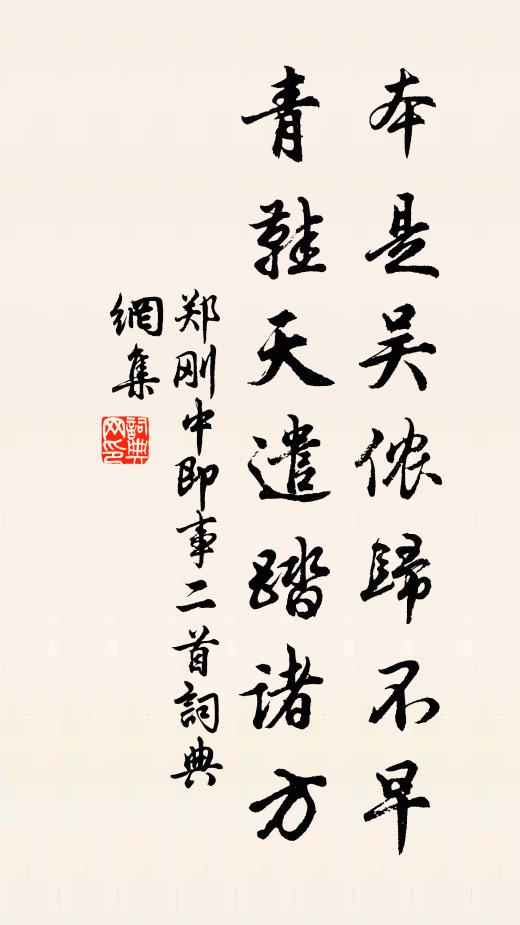 本是吴侬歸不早
青鞋天遣踏诸方
郑刚中即事二首詞典
網集
詞典
网印